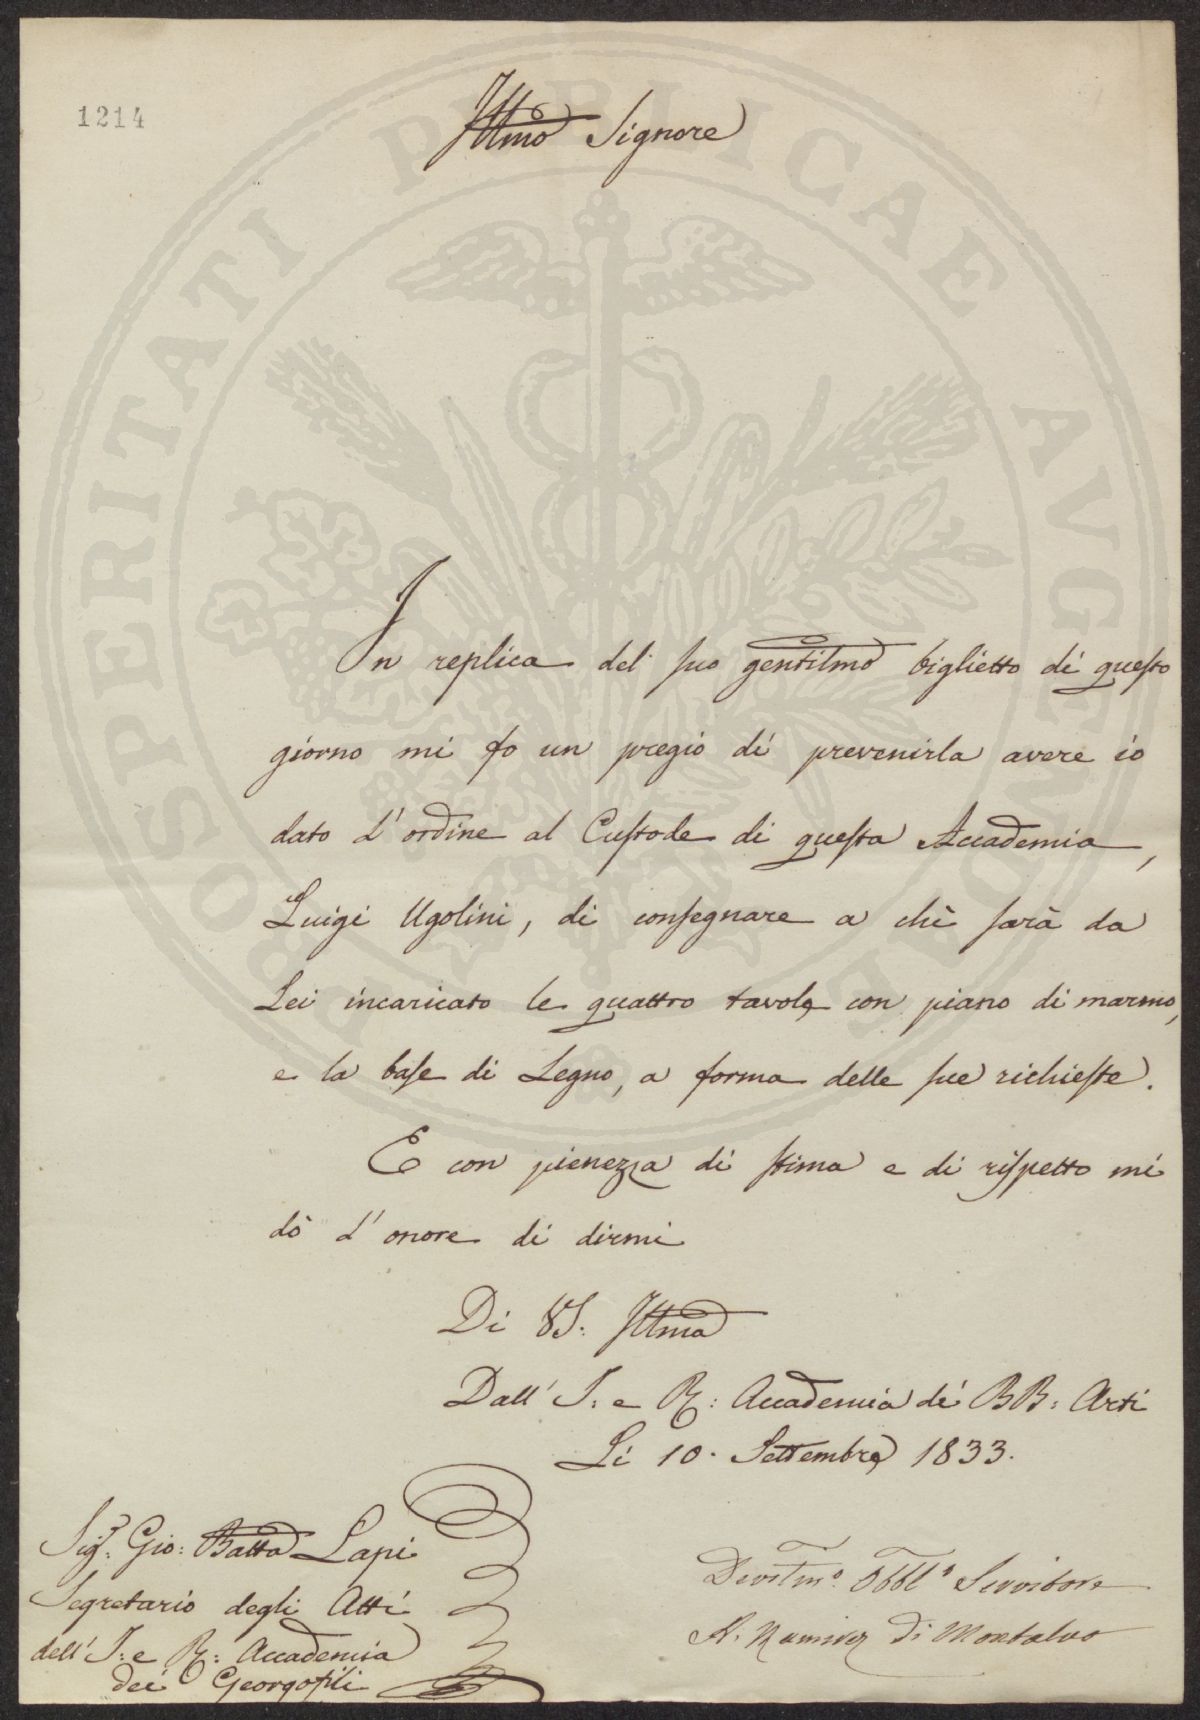 1214
Illmo Signore
In replica del suo gentilmo biglietto di questo
giorno mi fo un pregio di prevenirla avere io
dato l'ordine al Custode di questa Accademia,
Luigi Ugolini, di consegnare a chi sarà da
Lei incaricato le quattro tavole con piano di marmo,
e la base di Legno, a forma delle sue richieste.
E con pienezza di stima e di rispetto mi
dò l'onore di dirmi
Di VS: Illma
Dall' I: e R: Accademia di BB: Arti
Li 10. Settembre 1833.
Sigr: Gio: Batta Lapi
Segretario degli Atti
dell' I: e R: Accademia
dei Georgofili
Devotmo. Obbl° Servitore
A. Ramirez di Montalvo
PROSPERITATI PVBLICAE AVGENDAE